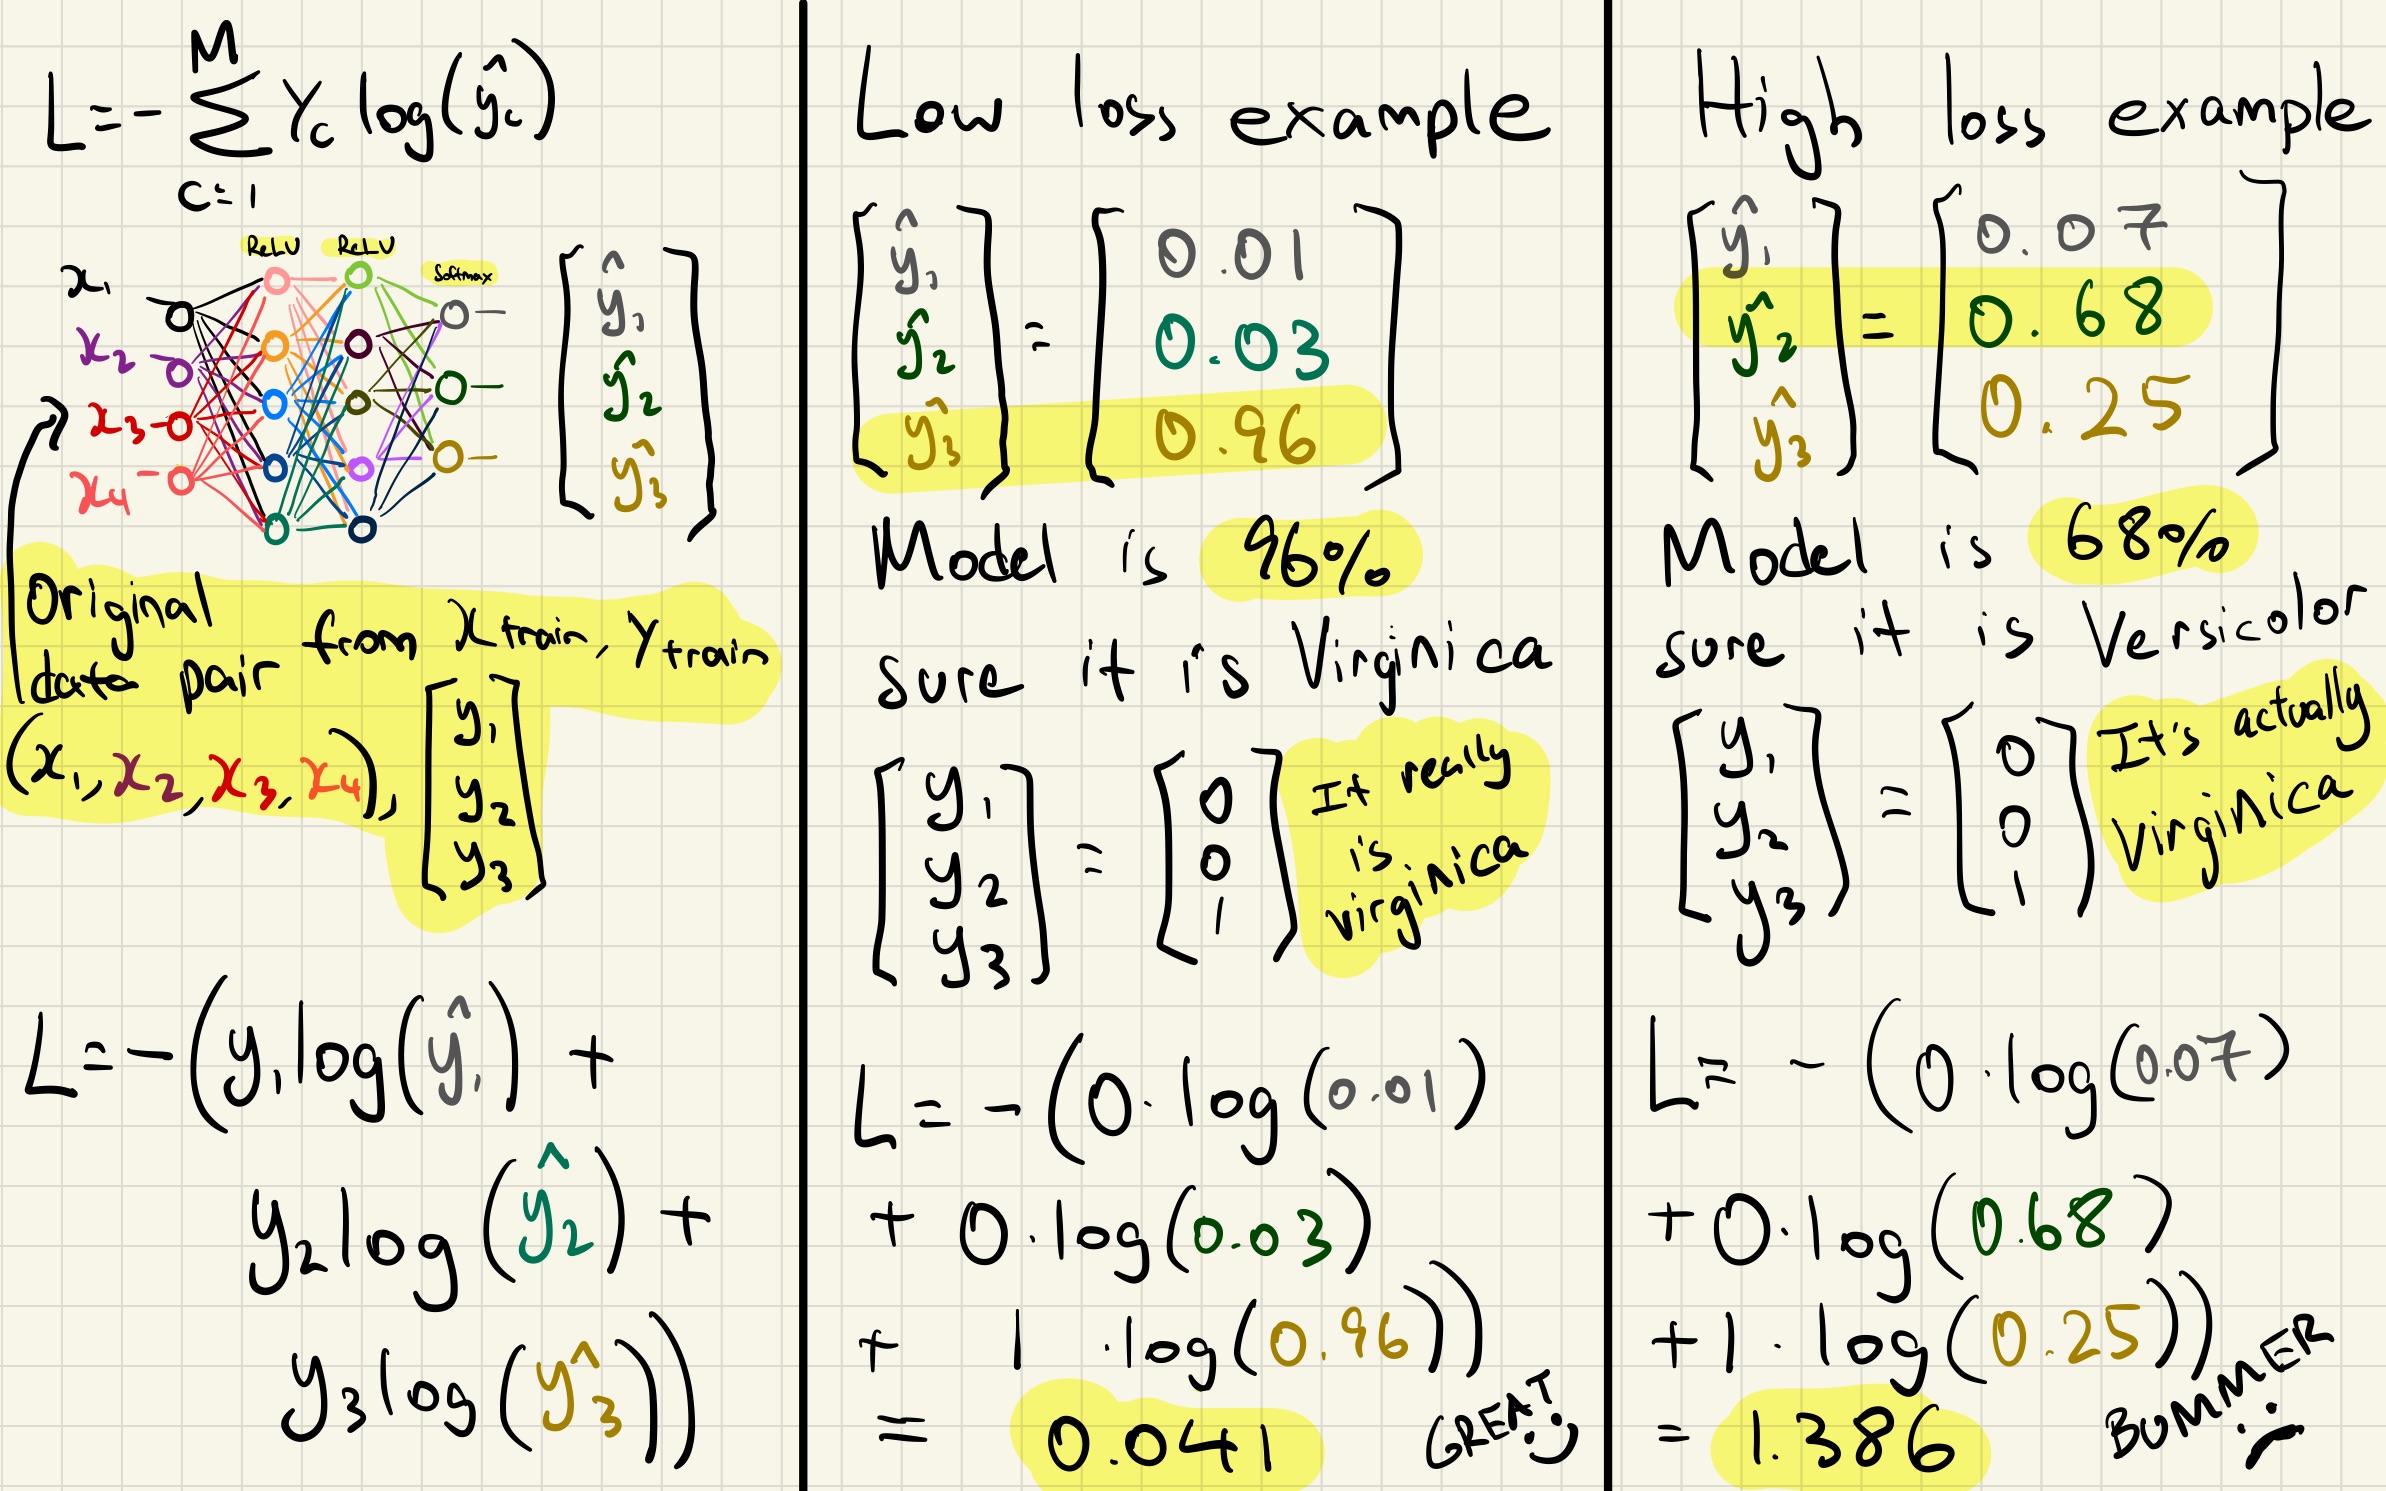 M
L = - Σ Yc log(ŷc)
c=1
ReLU ReLU Softmax
x1
x2
x3
x4
ŷ1
ŷ2
ŷ3
Original
data pair from Xtrain, Ytrain
(x1, x2, x3, x4), [y1
y2
y3]
L = -(y1 log(ŷ1) +
y2 log(ŷ2) +
y3 log(ŷ3))
Low loss example
[ŷ1 ŷ2 ŷ3] = [0.01 0.03 0.96]
Model is 96%
sure it is Virginica
[y1 y2 y3] = [0 0 1]
It really
is
virginica
L = -(0·log(0.01)
+ 0·log(0.03)
+ 1·log(0.96))
= 0.041
GREAT :)
High loss example
[ŷ1 ŷ2 ŷ3] = [0.07 0.68 0.25]
Model is 68%
sure it is Versicolor
[y1 y2 y3] = [0 0 1]
It's actually
Virginica
L = -(0·log(0.07)
+ 0·log(0.68)
+ 1·log(0.25))
= 1.386
BUMMER :(